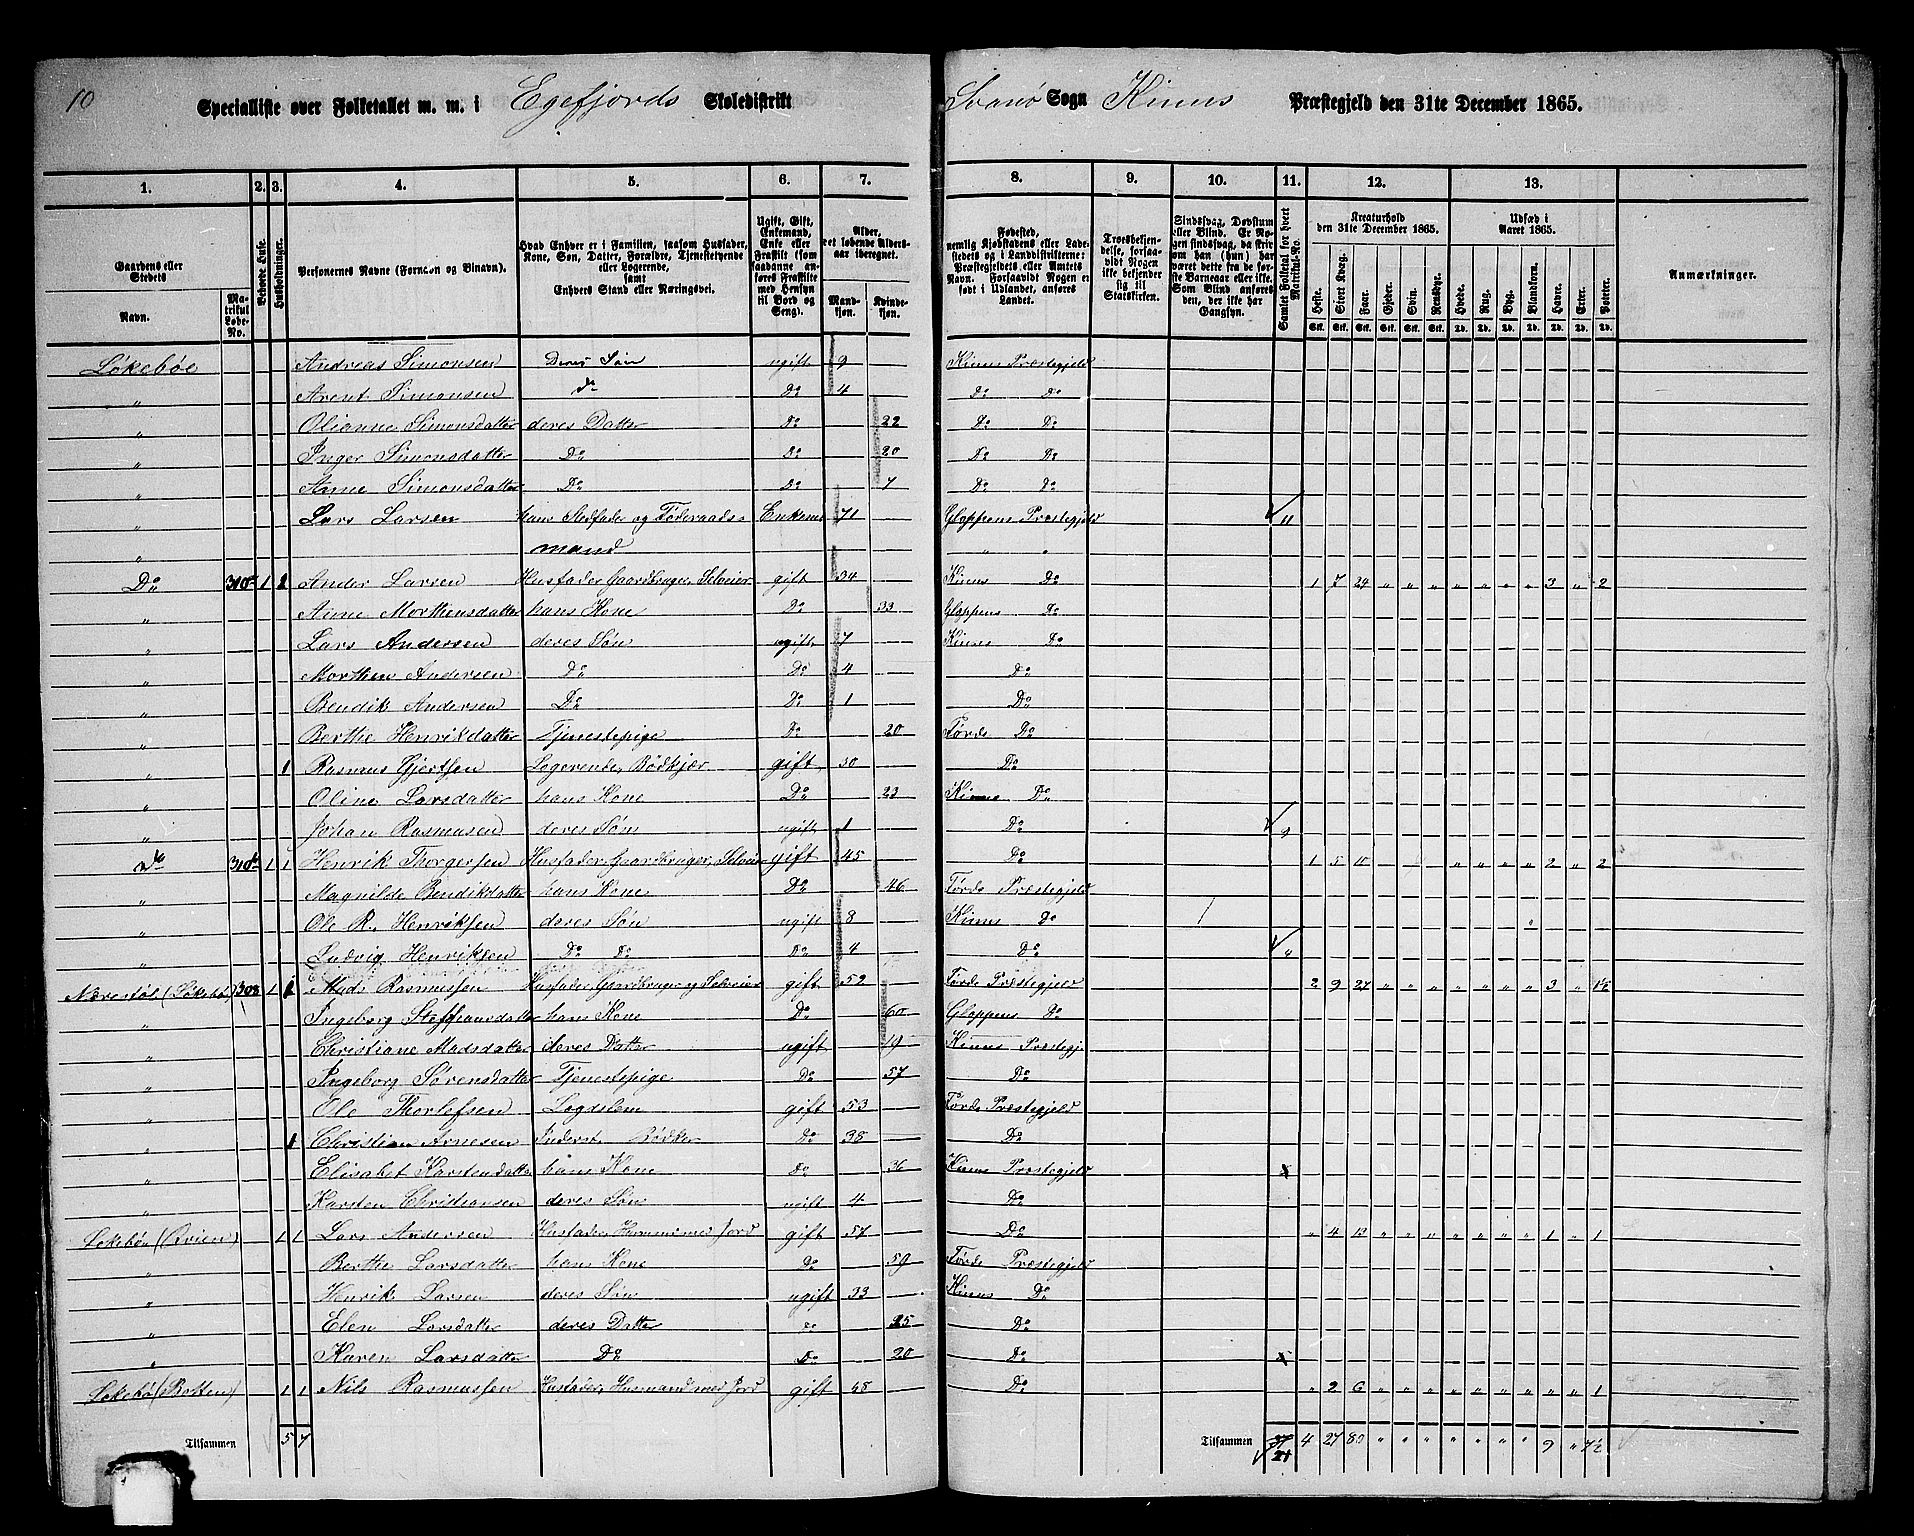 10
Specialliste over Folketallet m. m. i Egefjords Skoledistrikt Svanø Sogn Kinns Præstegjeld den 31te December 1865.
1. 2. 3. 4. 5. 6. 7. 8. 9. 10. 11. 12. 13.
Gaardens eller Stedets Navn. Matrikul Løbe-No. Beboede Huse. Husholdninger. Personernes Navne (Fornavn og Binavn). Hvad Enhver er i Familien, saasom Husfader, Kone, Søn, Datter, Forældre, Tjenestetyende eller Logerende, samt Enhvers Stand eller Næringsvei. Ugift, Gift, Enkemand, Enke eller Fraskilt (som saadanne anføres Fraskilte med Hensyn til Bord og Seng). Alder, det løbende Alders-aar iberegnet. Mandkjøn. Kvindekjøn.
Fødested, nemlig Kjøbstadens eller Ladestedets og i Landdistrikterne: Præstegjeldets eller Amtets Navn. Forsaavidt Nogen er født i Udlandet, anføres Landet. Troesbekjendelse, forsaavidt Nogen ikke bekjender sig til Statskirken. Sindssvag, Døvstum eller Blind. Er Nogen sindssvag, da skrives om han (hun) har været dette fra de første Barneaar eller ikke. Som Blind anføres den, der ikke har Gangsyn. Samlet Folketal for hvert Matrikul-No. Kreaturhold den 31te December 1865. Udsæd i Aaret 1865. Anmærkninger.
Heste. Stort Kvæg. Faar. Gjeder. Svin. Rensdyr. Hvede. Rug. Byg. Blandkorn. Havre. Erter. Poteter.
Løkebøe Andreas Simonsen Deres Søn ugift 9 Kinns Præstegjeld
" Arent Simonsen Do Do 4 Do Do
" Olianne Simonsdatter deres Datter Do 22 Do Do
" Inger Simonsdatter Do Do 20 Do Do
" Anne Simonsdatter Do Do 7 Do Do
" Lars Larsen hans Stedfader og Føderaads- Enkem 71 Gloppens Præstegjeld 11
" mand " "
Do 310a 1 2 Ander Larsen Husfader Gaardbruger Selveier gift 34 Kinns Do 1 7 24 " " " " " " " 3 " 2
" Anne Morthensdatter hans Kone Do 33 Gloppens Do
" Lars Andersen deres Søn ugift 7 Kinns Do
" Morthen Andersen Do Do 4 Do
" Bendik Andersen Do Do 1 Do
" Berthe Henrikdatter Tjenestepige Do 20 Førde Do
" 1 Rasmus Gjertsen Logerende, Bødkjær gift 30 Do
" Oline Larsdatter hans Kone Do 23 Kinns Do
" Johan Rasmusen deres Søn ugift 1 Do 9
Do 310b 1 1 Henrik Thorgersen Husfader, Gaardbruger, Selveier gift 45 Do 1 5 10 " " " " 2 " 2
" Magnilde Bendikdatter hans Kone Do 46 Førde Præstegjeld
" Ole R. Henriksen deres Søn ugift 8 Kinns Do
" Ludvig Henriksen Do Do Do 4 Do 4
Nærestøl (Løkebø) 308 1 1 Mads Rasmussen Husfader Gaardbruger og Selveier gift 52 Førde Præstegjeld 2 9 27 " " " " " " " 3 " 1½
" Ingeborg Steffansdatter hans Kone Do 60 Gloppens Do
" Christiane Madsdatter deres Datter ugift 19 Kinns Præstegj.
" Ingeborg Sørensdatter Tjenestepige Do 57 Do
" Ole Thorlefsen Lægdslem gift 53 Førde Præstegjeld
" 1 Christian Arnesen Inderst, Bødker Do 38 Do
" Elisabet Karstendatter hans Kone Do 36 Kinns Præstegjeld
" Karsten Christiansen deres Søn ugift 4 Do
Løkebø (Qvien) 1 1 Lars Andersen Husfader Husmand med Jord gift 57 Do " 4 13 " " " " " " " 1 " 1
" Berthe Larsdatter hans Kone Do 59 Førde Præstegjeld
" Henrik Larsen deres Søn ugift 33 Kinns Do
" Elen Larsdatter deres Datter Do 25 Do
" Karen Larsdatter Do Do 20 Do
Løkebø (Botten) 1 1 Nils Rasmussen Husfader, Husmand med Jord gift 48 Do " 2 6 " " " " " " " " " 1
Tilsammen 5 7 Tilsammen 4 27 80 " " " " " " " 9 " 7½